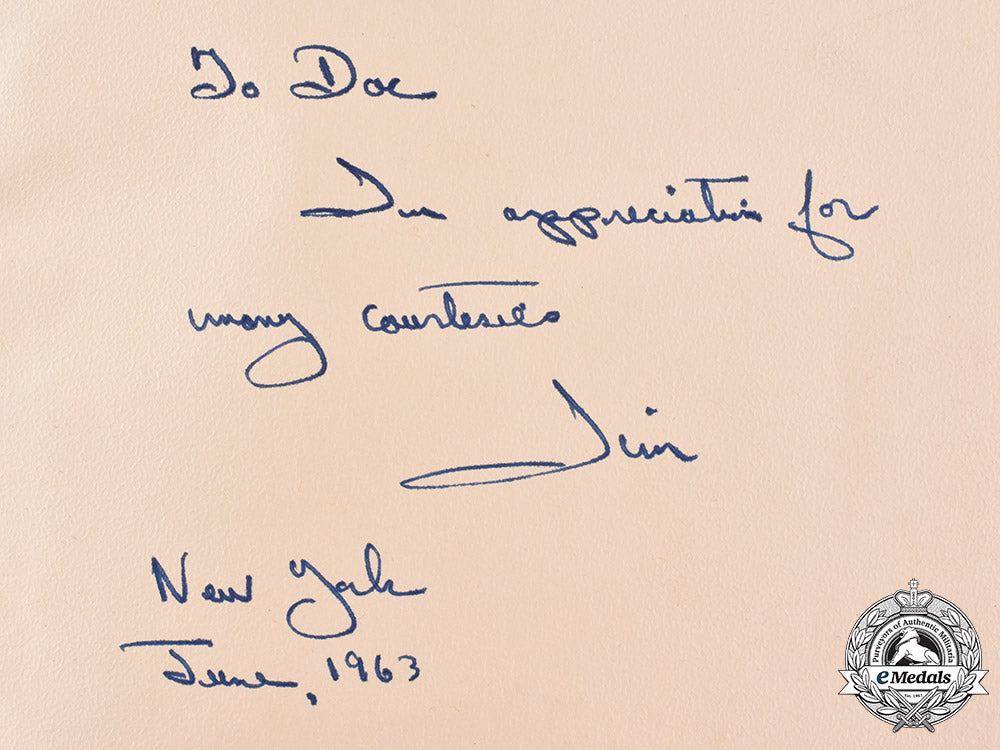 To Doc
In appreciation for
many courtesies
Jim
New York
June, 1963
Purveyors of Authentic Militaria
eMedals